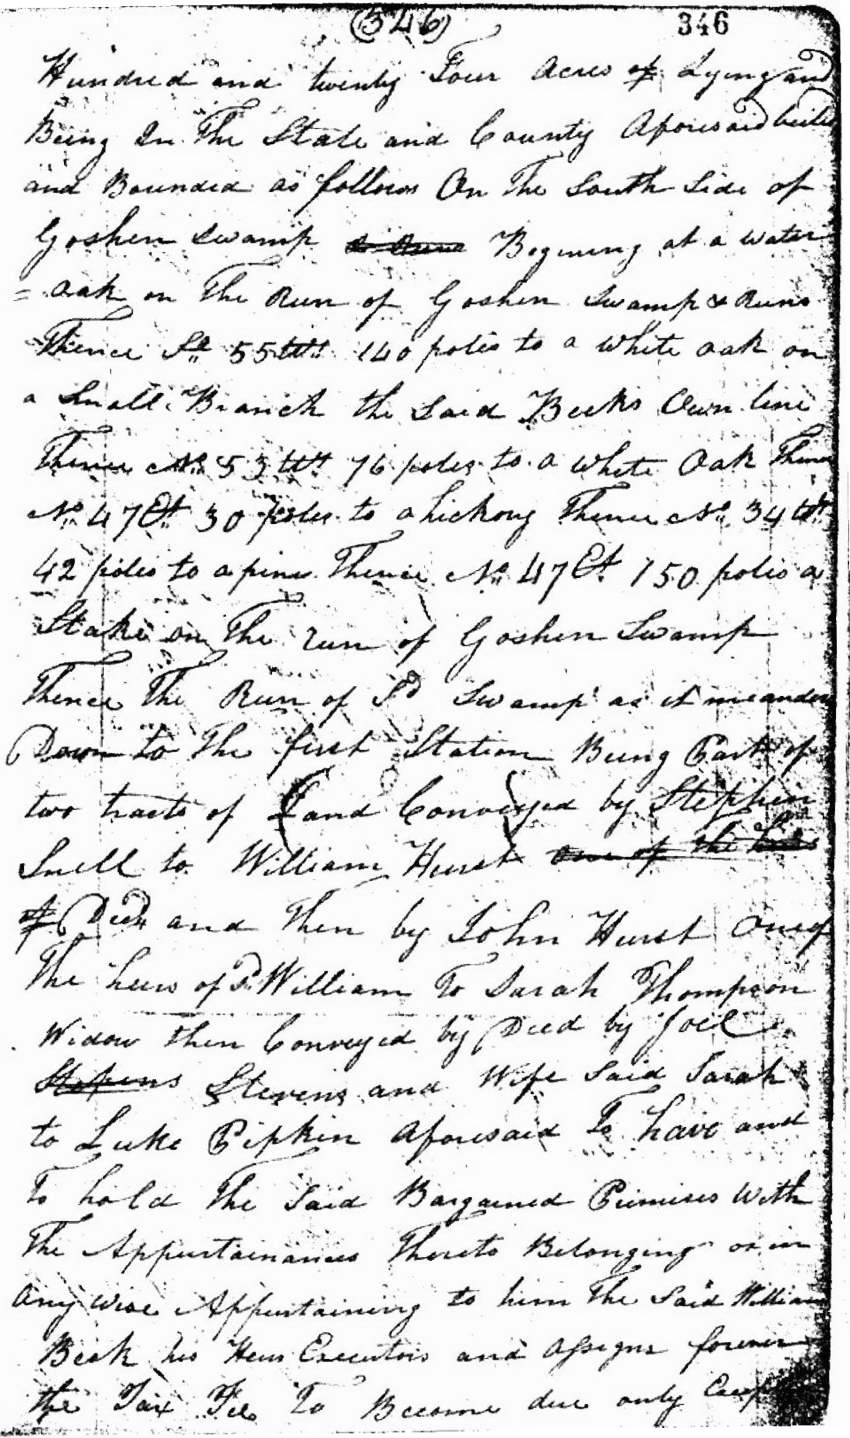 (346) 346
Hundred and twenty Four Acres of Lying and
Being In The State and County Aforesaid
and Bounded as follows On The South Side of
Goshen Swamp Begining at a water
= oak on The Run of Goshen Swamp & Runs
Thence So. 55 Wt. 140 poles to a white oak on
a Small Branch the Said Becks Own line
Thence No. 53 Wt 76 poles to a white Oak Thence
No. 47 Et. 30 poles to a hickory Thence No. 34 Wt.
42 poles to a pine Thence No. 47 Et. 150 poles a
Stake on The run of Goshen Swamp
Thence The Run of Sd Swamp as it meanders
Down to The first Station Being Part of
two tracts of Land Conveyed by Stephen
Snell to William Hurst One of the Heirs
of Decd. and Then by John Hurst One of
The heirs of Sd. William To Sarah Thompson
Widow then Conveyed by Deed by Joel
Stevens and Wife Said Sarah
to Luke Pipkin Aforesaid To have and
To hold The Said Bargained Primises With
The Appurtainances Thereto Belonging or in
Any wise Appurtaining to him The Said William
Beck his Heirs Executors and Assigns forever
the Tax Fee To Become due only